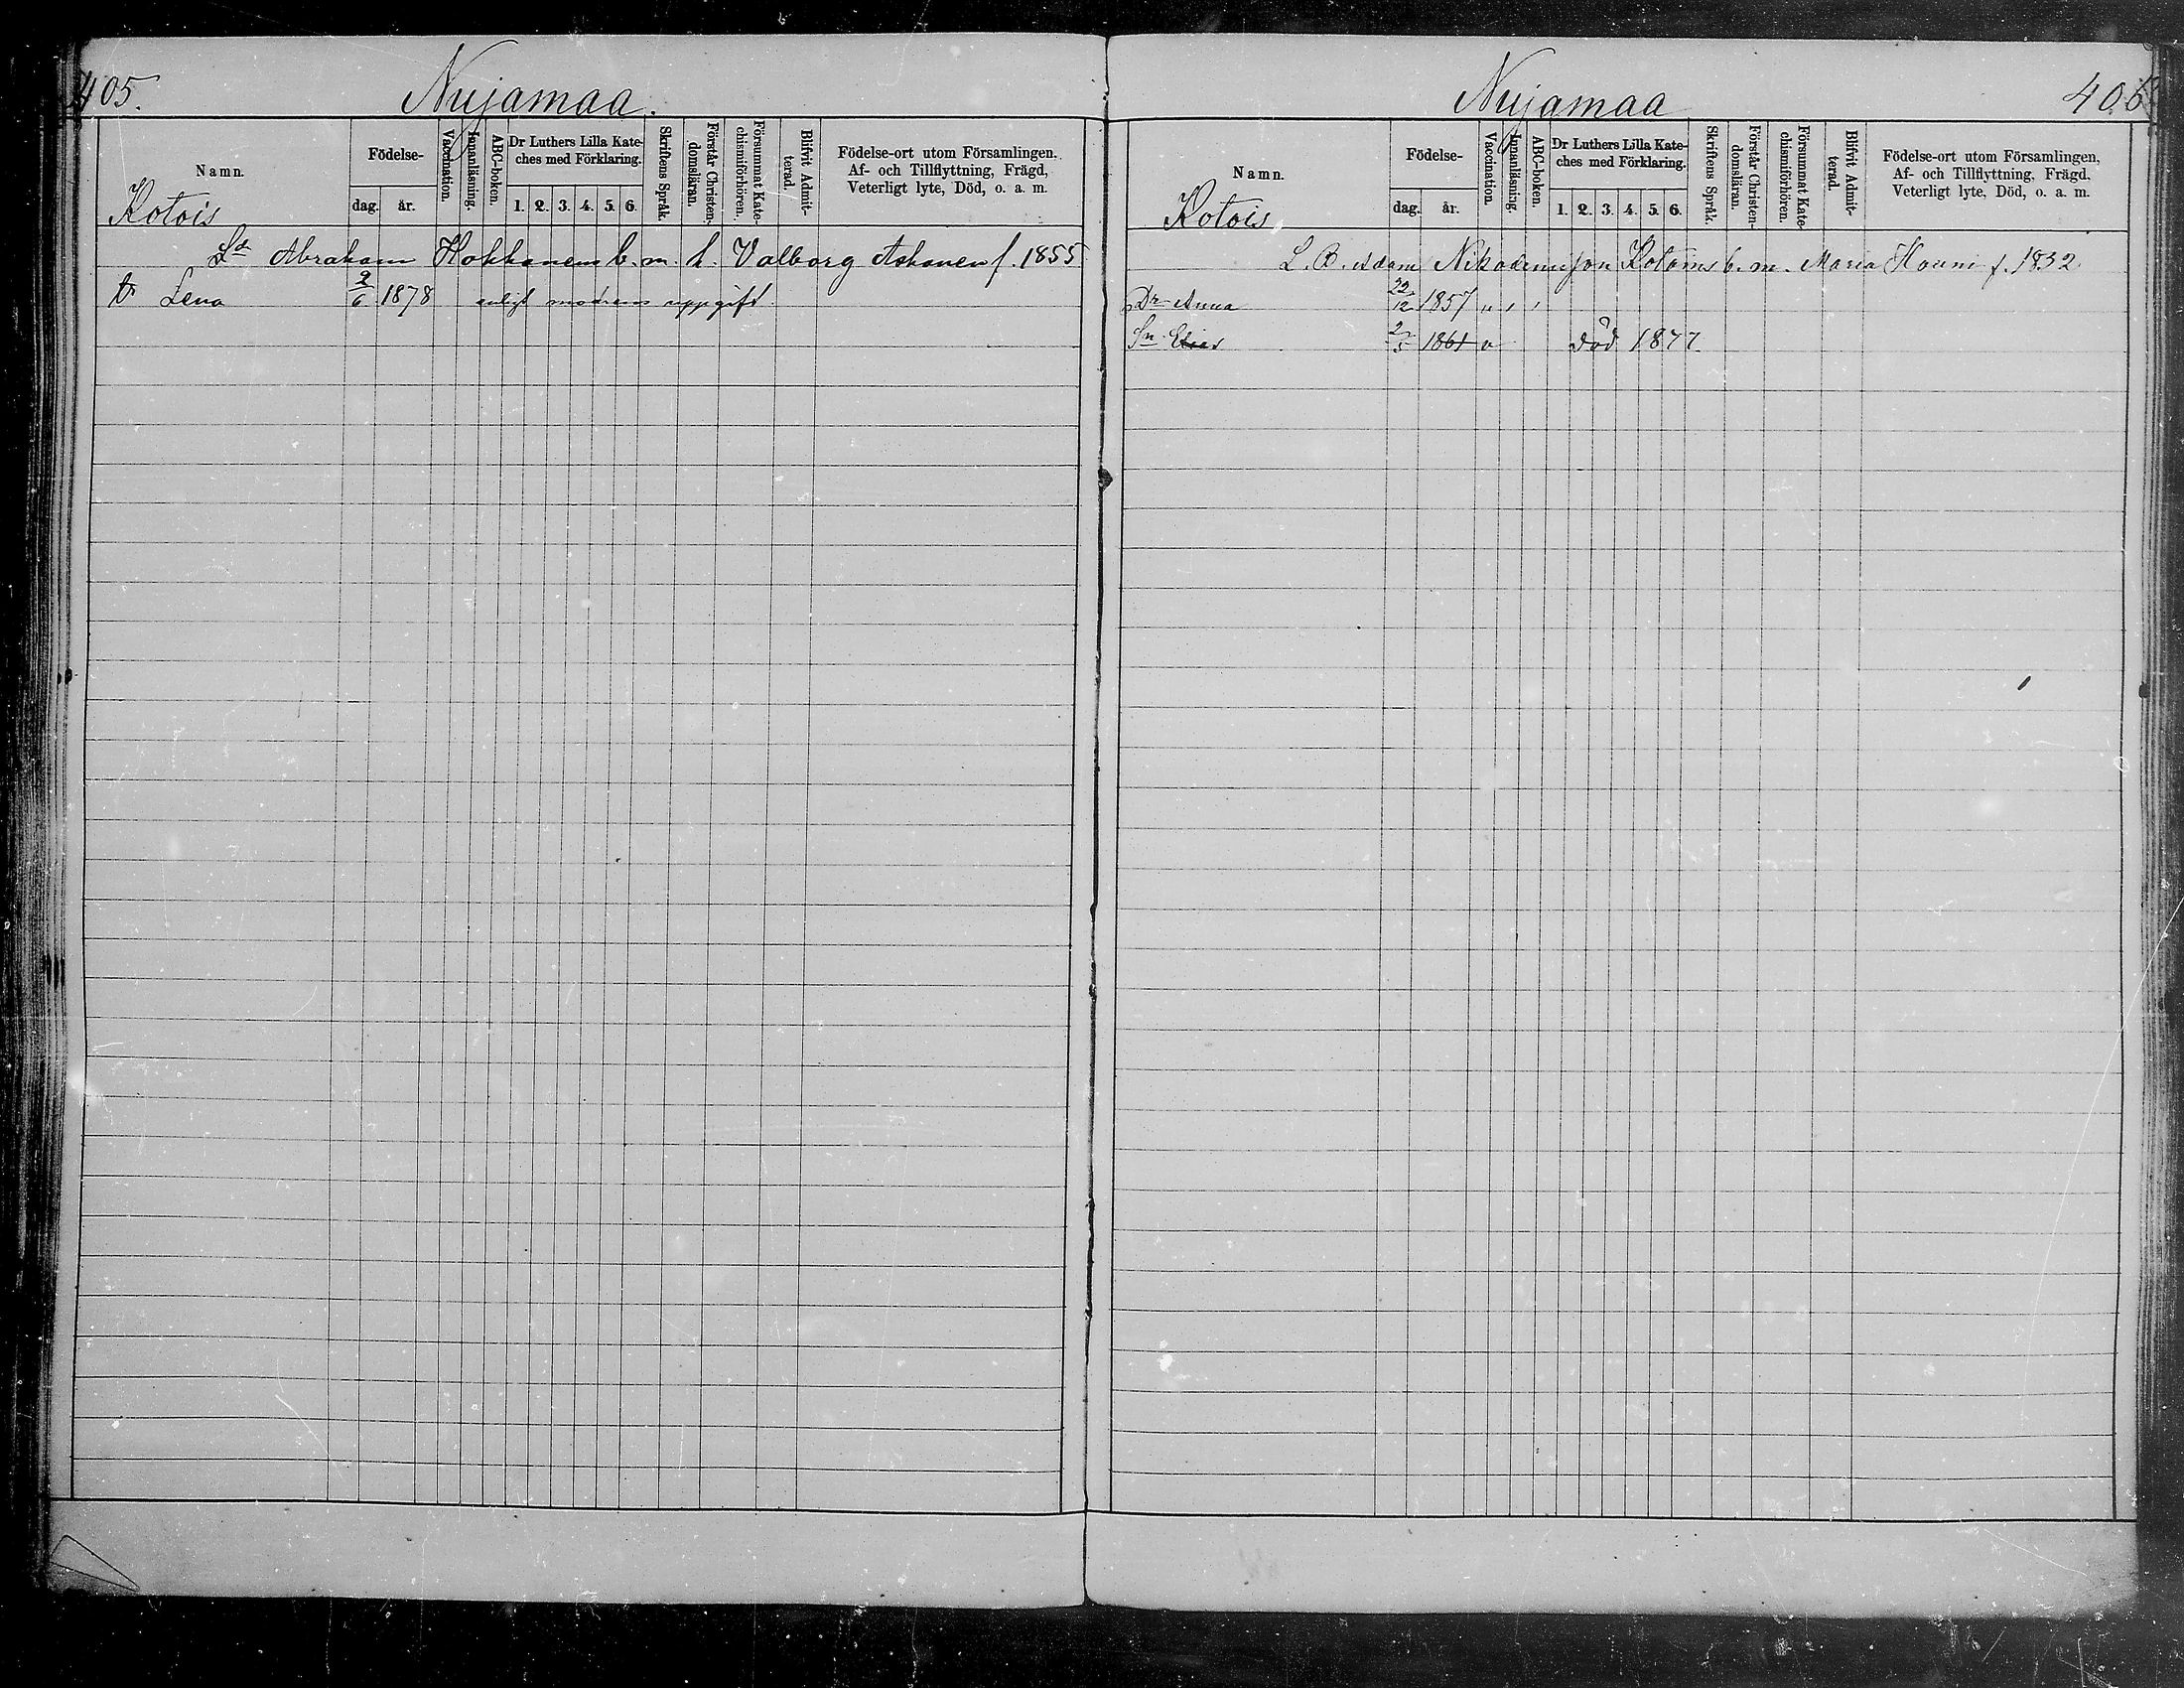 405.
Nujamaa.
Namn.
Födelse-
dag.
år.
Vaccination.
Innanläsning.
ABC-boken.
Dr Luthers Lilla Kate-
ches med Förklaring.
1. 2. 3. 4. 5. 6.
Skriftens Språk.
Förstår Christen-
domsläran.
Försummat Kate-
chismiförhören.
Blifvit Admit-
terad.
Födelse-ort utom Församlingen,
Af- och Tillflyttning, Frägd,
Veterligt lyte, Död, o. a. m.
Kotois
Ld Abraham Hokkanens b. m. h. Valborg Askanen f. 1855
Dr Lena 2/6 1878 enligt modrens uppgift.
Nujamaa
406
Namn.
Födelse-
dag.
år.
Vaccination.
Innanläsning.
ABC-boken.
Dr Luthers Lilla Kate-
ches med Förklaring.
1. 2. 3. 4. 5. 6.
Skriftens Språk.
Förstår Christen-
domsläran.
Försummat Kate-
chismiförhören.
Blifvit Admit-
terad.
Födelse-ort utom Församlingen,
Af- och Tillflyttning, Frägd,
Veterligt lyte, Död, o. a. m.
Kotois
L. B. Adam Nikodemusson Kotoms b. m. Maria Houni f. 1832
Dr Anna 22/12 1857 " , ,
Sn Elias 2/5 1861 v död 1877